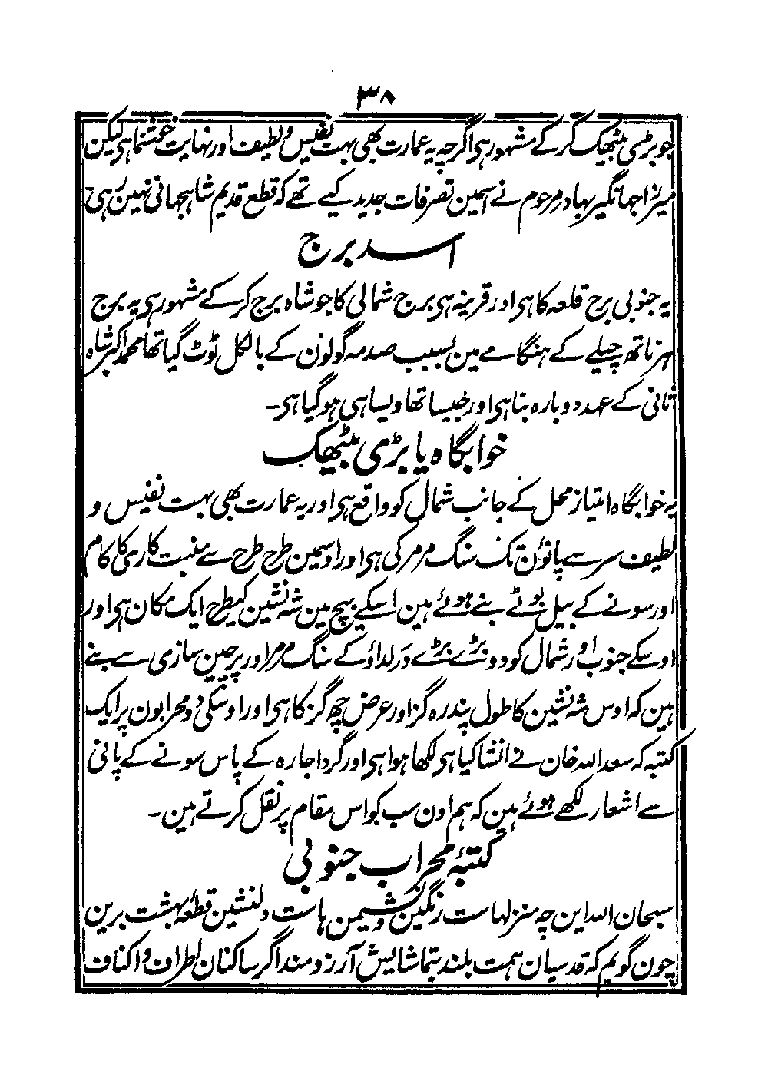 ۳۸
جو بڑی بیٹھک کرکے مشہور ہی اگرچہ یہ عمارت بھی بہت نفیس و لطیف اور نہایت خوشنما ہی لیکن
میرزا جہانگیر بہادر مرحوم نے اسمین تصرفات جدید کیے تھے کہ قطع قدیم شاہجہانی نہین رہی
اسد برج
یہ جنوبی برج قلعہ کا ہی اور قرینہ ہی برج شمالی کا جو شاہ برج کرکے مشہور ہی یہ برج
ہرناتھ چیلے کے ہنگامے مین بسبب صدمہ گولون کے بالکل ٹوٹ گیا تھا محمد اکبر شاہ
ثانی کے عہد دوبارہ بنا ہی اور جیسا تھا ویسا ہی ہوگیا ہی۔
خوابگاہ یا بڑی بیٹھک
یہ خوابگاہ امتیاز محل کے جانب شمال کو واقع ہی اور یہ عمارت بھی بہت نفیس و
لطیف سر سے پانؤن تک سنگ مرمر کی ہی اور اوسمین طرح طرح سے منبت کاری کا کام
اور سونے کے بیل بوٹے بنے ہوئے ہین اسکے بیچ مین شہ نشین کیطرح ایک مکان ہی اور
اوسکے جنوب اور شمال کو دو بڑے بڑے در لداؤ کے سنگ مرمر اور پرچین سازی سے بنے
ہین کہ اوس شہ نشین کا طول پندرہ گز اور عرض چھ گز کا ہی اور اوسکی دو محرابون پر ایک
کتبہ کہ سعد اللہ خان نے انشا کیا ہی لکھا ہوا ہی اور گرد اجارہ کے پاس سونے کے پانی
سے اشعار لکھے ہوئے ہین کہ ہم اون سب کو اس مقام پر نقل کرتے ہین۔
کتبۂ محراب جنوبی
سبحان اللہ این چہ منزلہاست رنگین و نشیمن ہاست دلنشین قطعۂ بہشت برین
چون گویم کہ قدسیان ہمت بلند بتماشایش آرزومند اگر ساکنان اطراف و اکناف